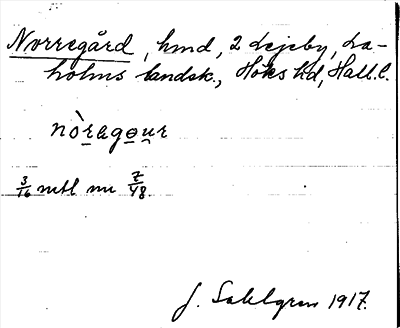 Norregård, hmd, 2 Lejeby, La-
holms landsk., Höks hd, Hall. l.
nòragou̯r
3/16 mtl nu 7/48.
J. Sahlgren 1917.